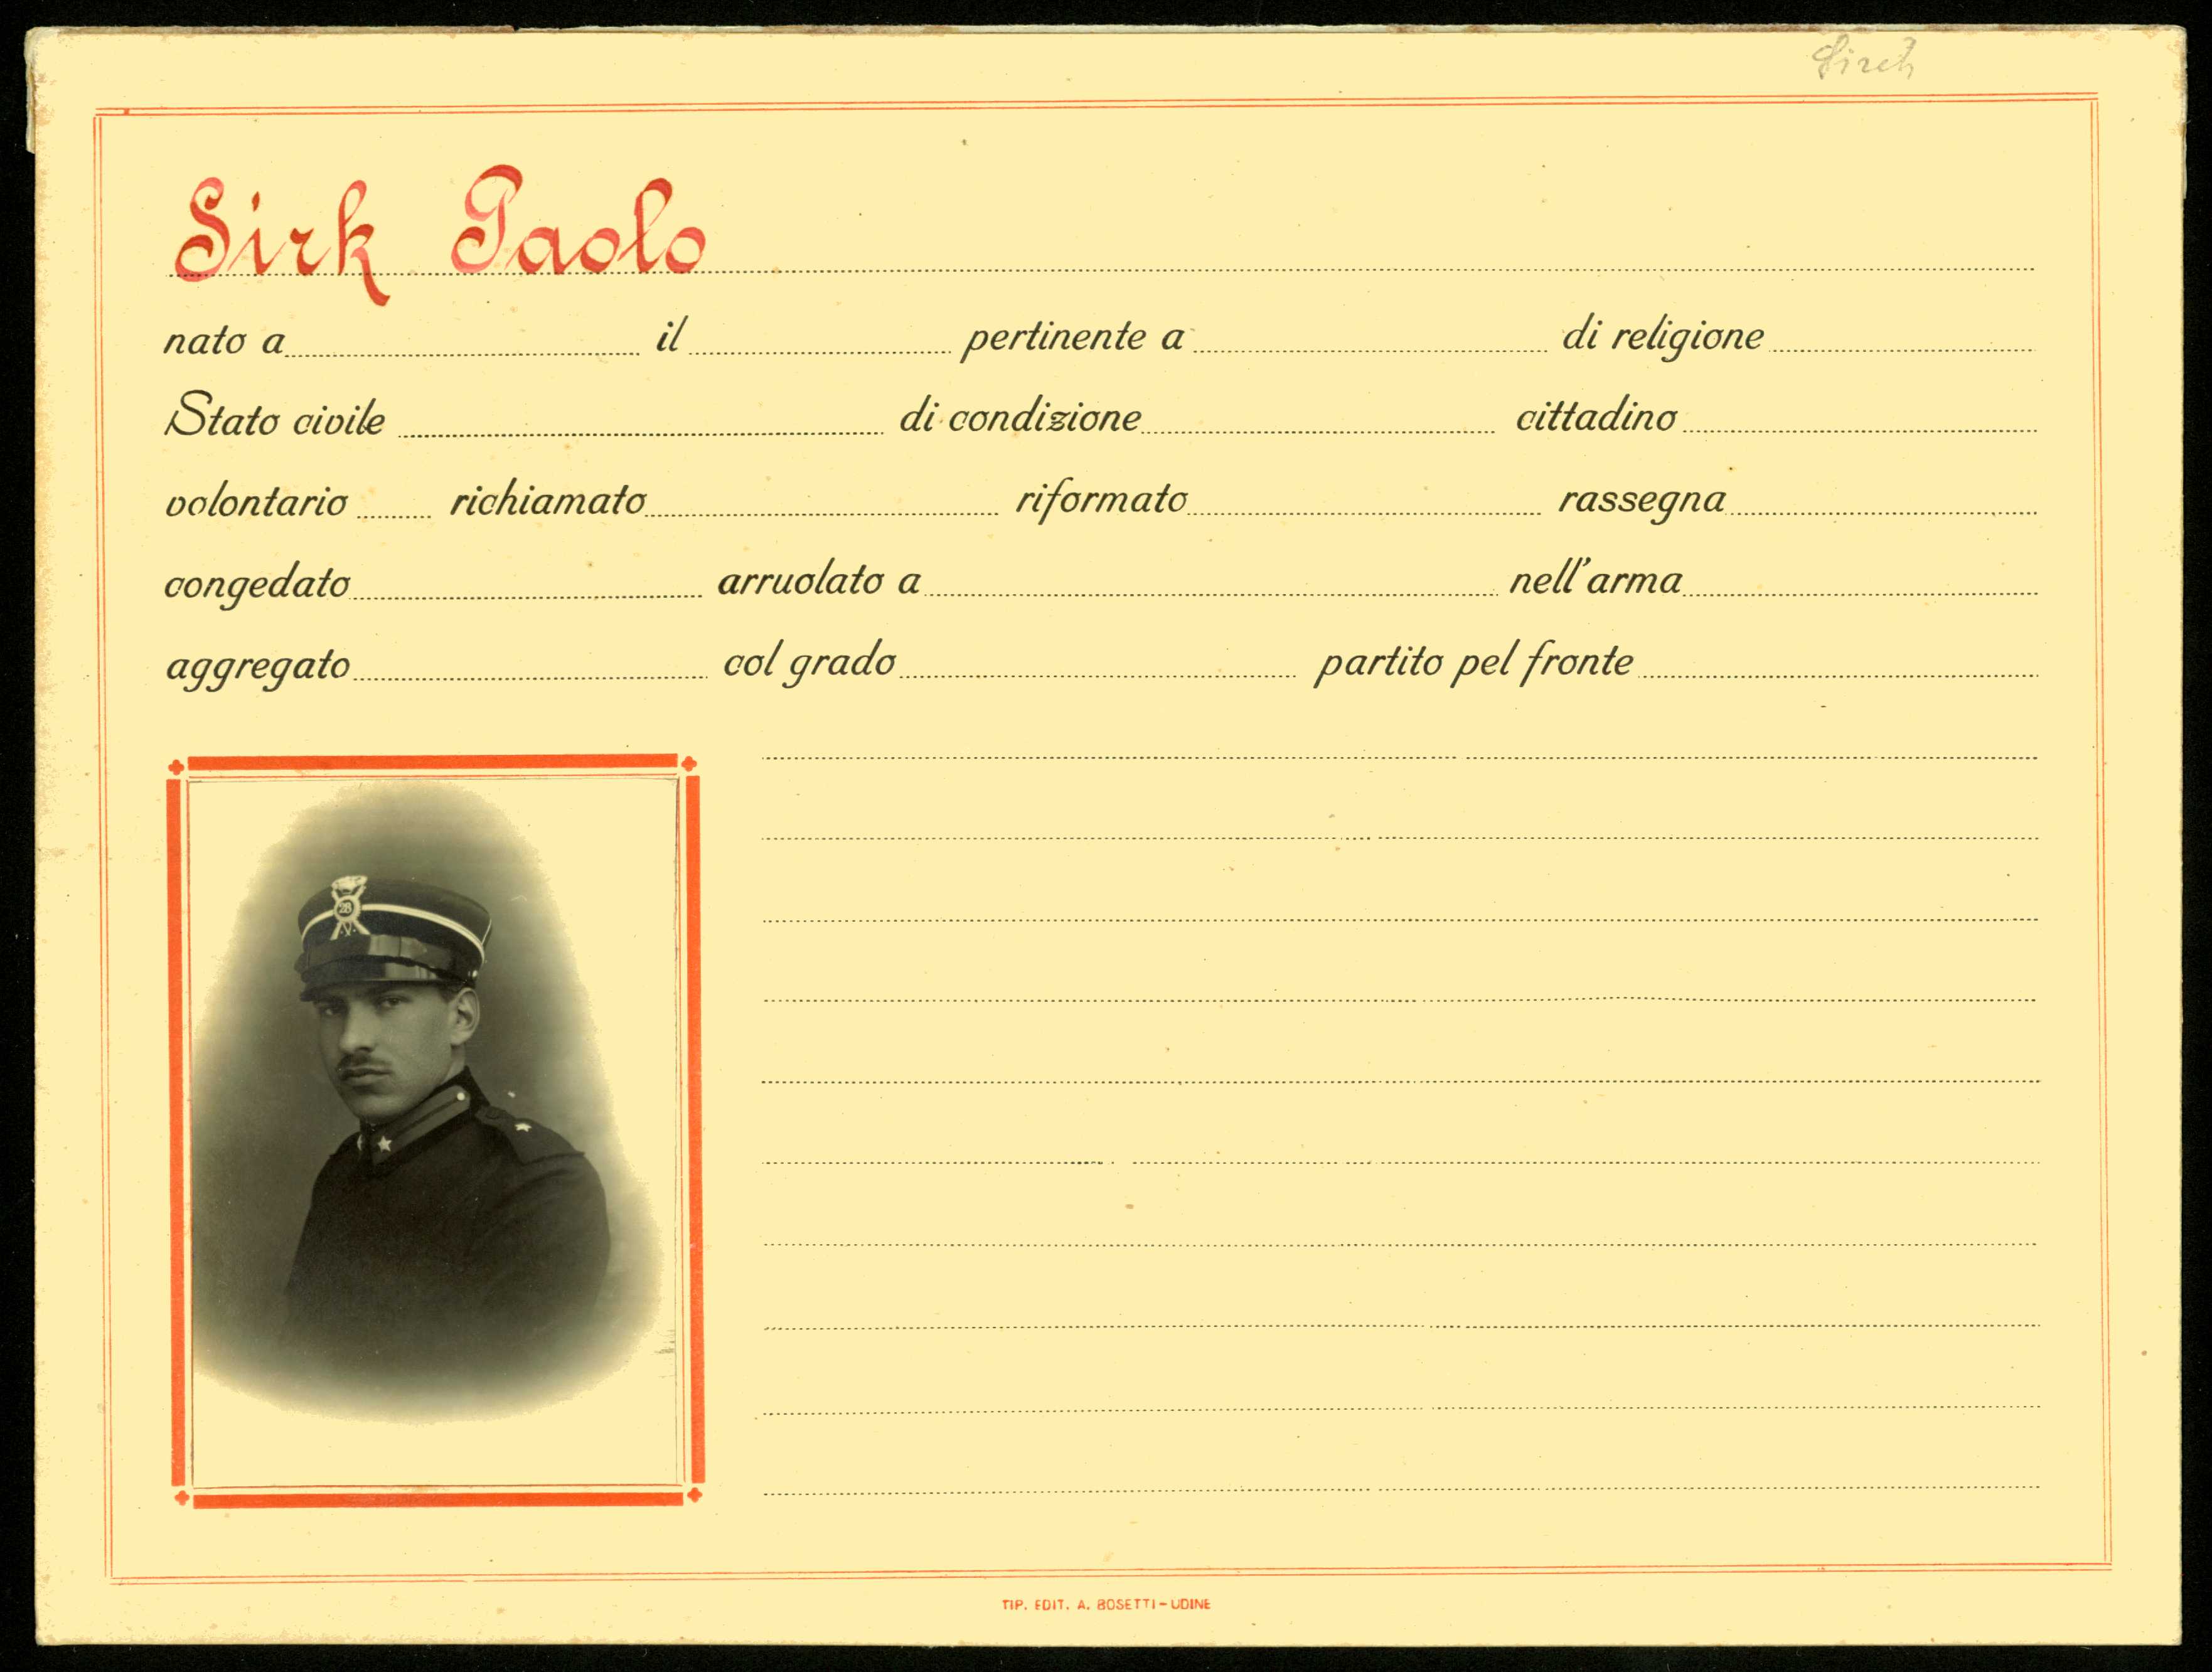 Sirch
Sirk Paolo
nato a il pertinente a di religione
Stato civile di condizione cittadino
volontario richiamato riformato rassegna
congedato arruolato a nell'arma
aggregato col grado partito pel fronte
28
TIP. EDIT. A. BOSETTI - UDINE